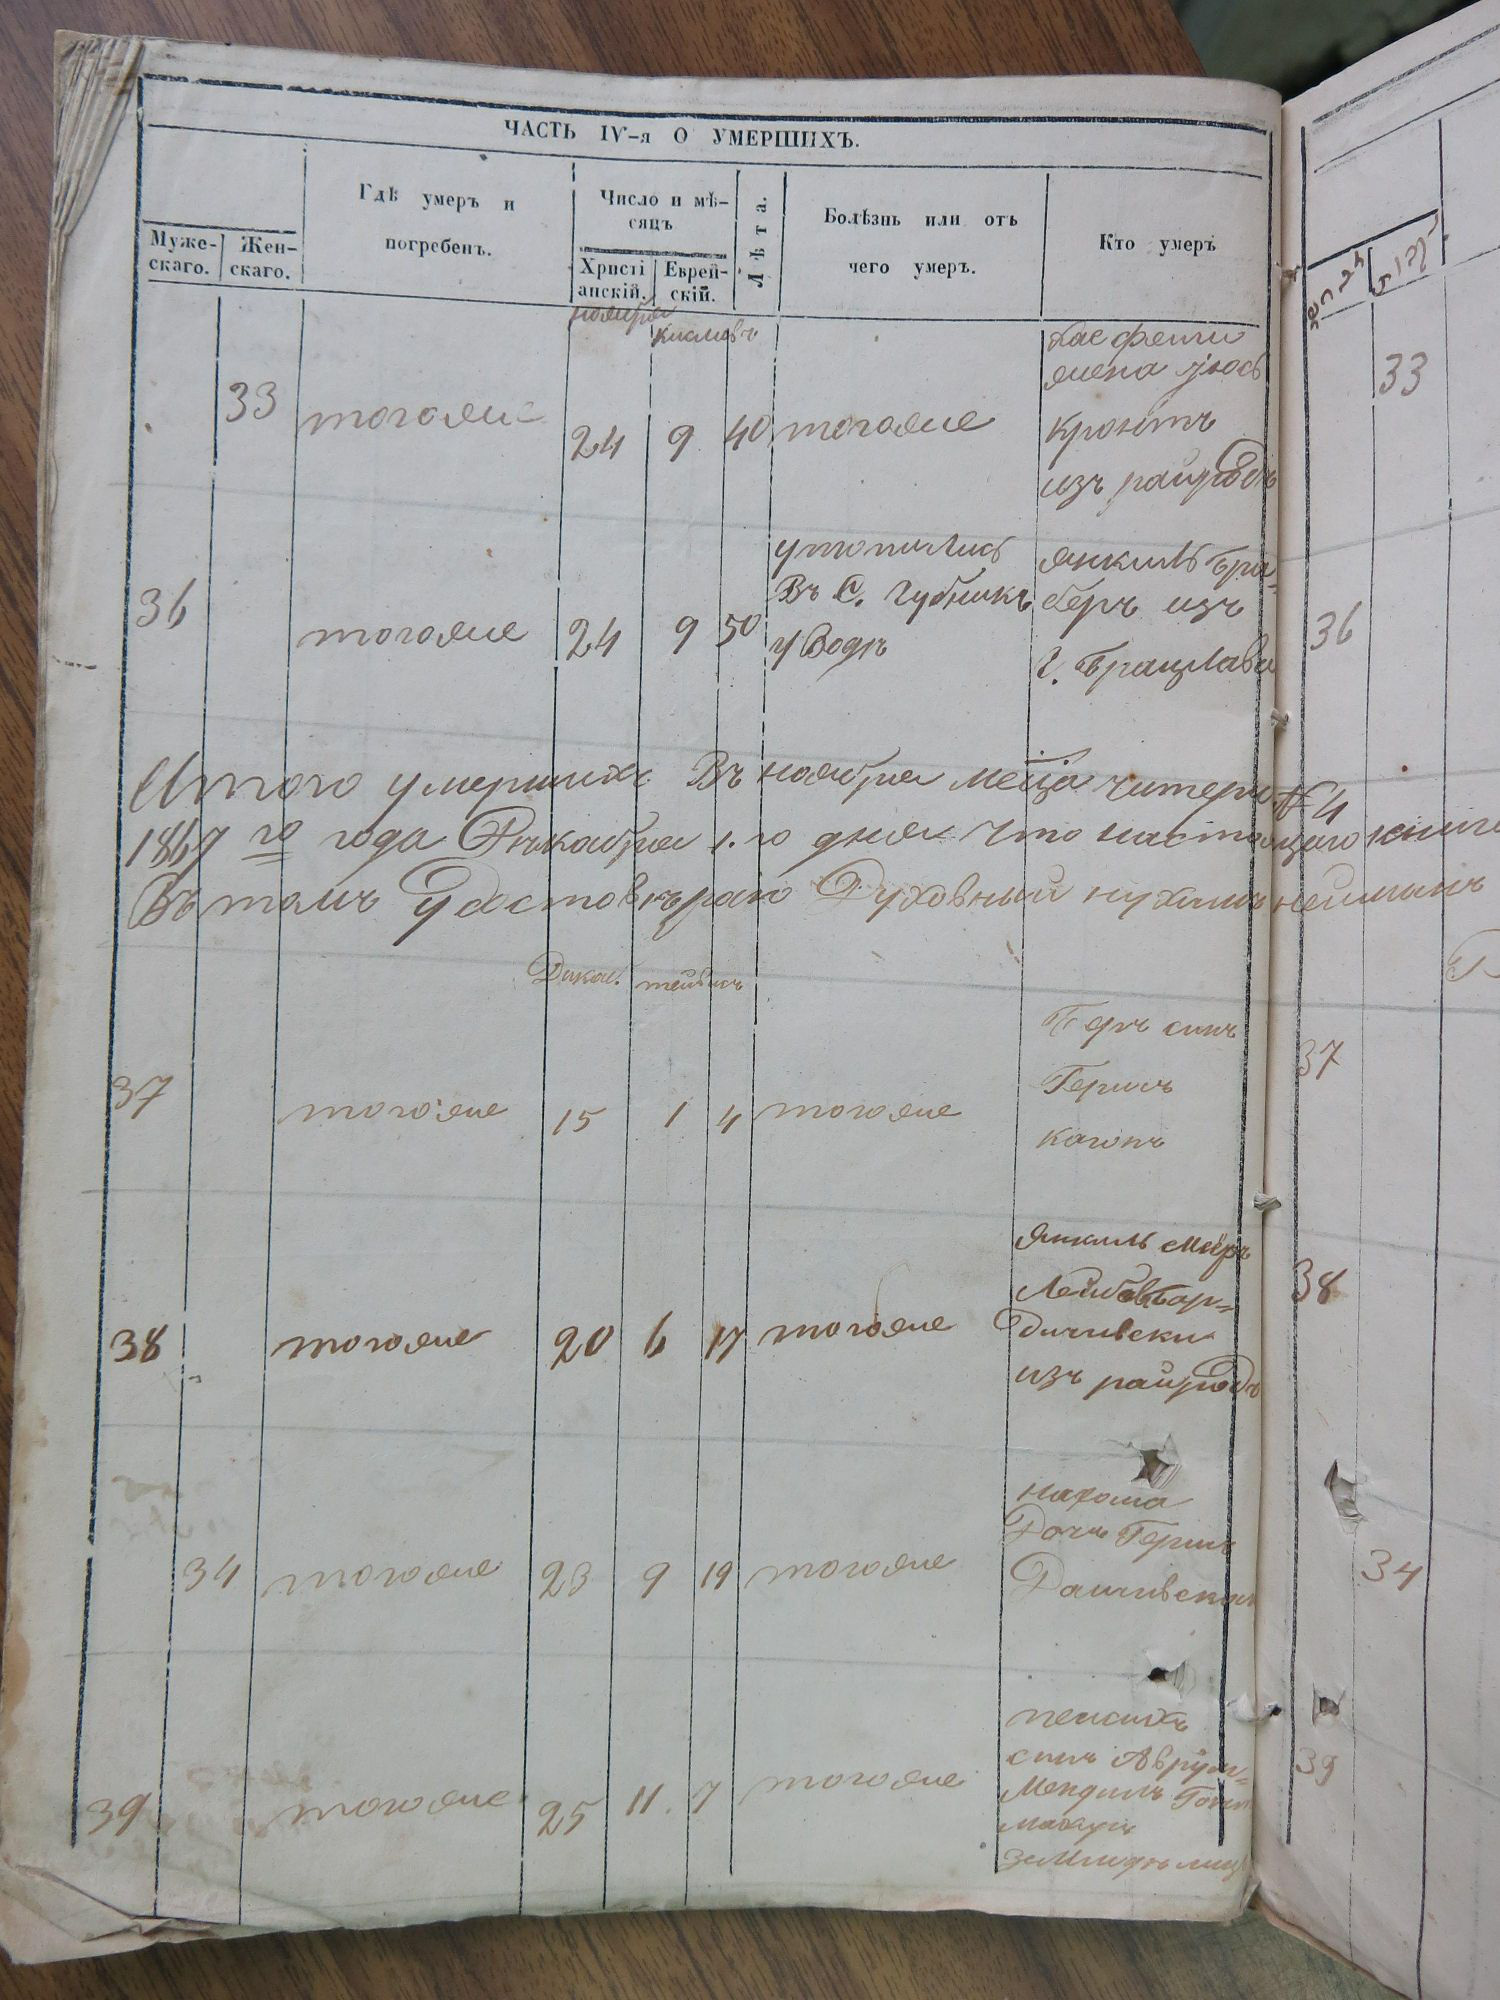 ЧАСТЬ IV-я О УМЕРШИХЪ.
Муже-
скаго.
Жен-
скаго.
Гдѣ умеръ и
погребенъ.
Число и мѣ-
сяцъ
Христі
анскій.
Еврей-
скій.
Лѣта.
Болѣзнь или отъ
чего умеръ.
Кто умеръ
ноября
кислевъ
33
тогоже
24
9
40
тогоже
жена
из райгродъ
33
36
тогоже
24
9
50
утопился
Въ С. Губникъ
у Водѣ
янкиль Гра=
беръ изъ
г. Брацлава
36
Итого умершихъ Въ ноября месца читери № 4
1867 го года Дѣкабря 1. го дня что настоящаго книге
Въ томъ Удостовѣраю Духовный нухимъ нейманъ
Дикаб.
тейвисъ
37
тогоже
15
1
4
тогоже
Беръ синъ
Гершъ
когонъ
37
38
тогоже
20
6
17
тогоже
Янкиль Меиръ
Лейбовъ Бар=
дичивски
изъ райгродъ
38
34
тогоже
23
9
19
тогоже
нахома
Дочъ Гершъ
Дашивски
34
39
тогоже
25
11
7
тогоже
пейсихъ
синъ Аврум=
Мендиль
39